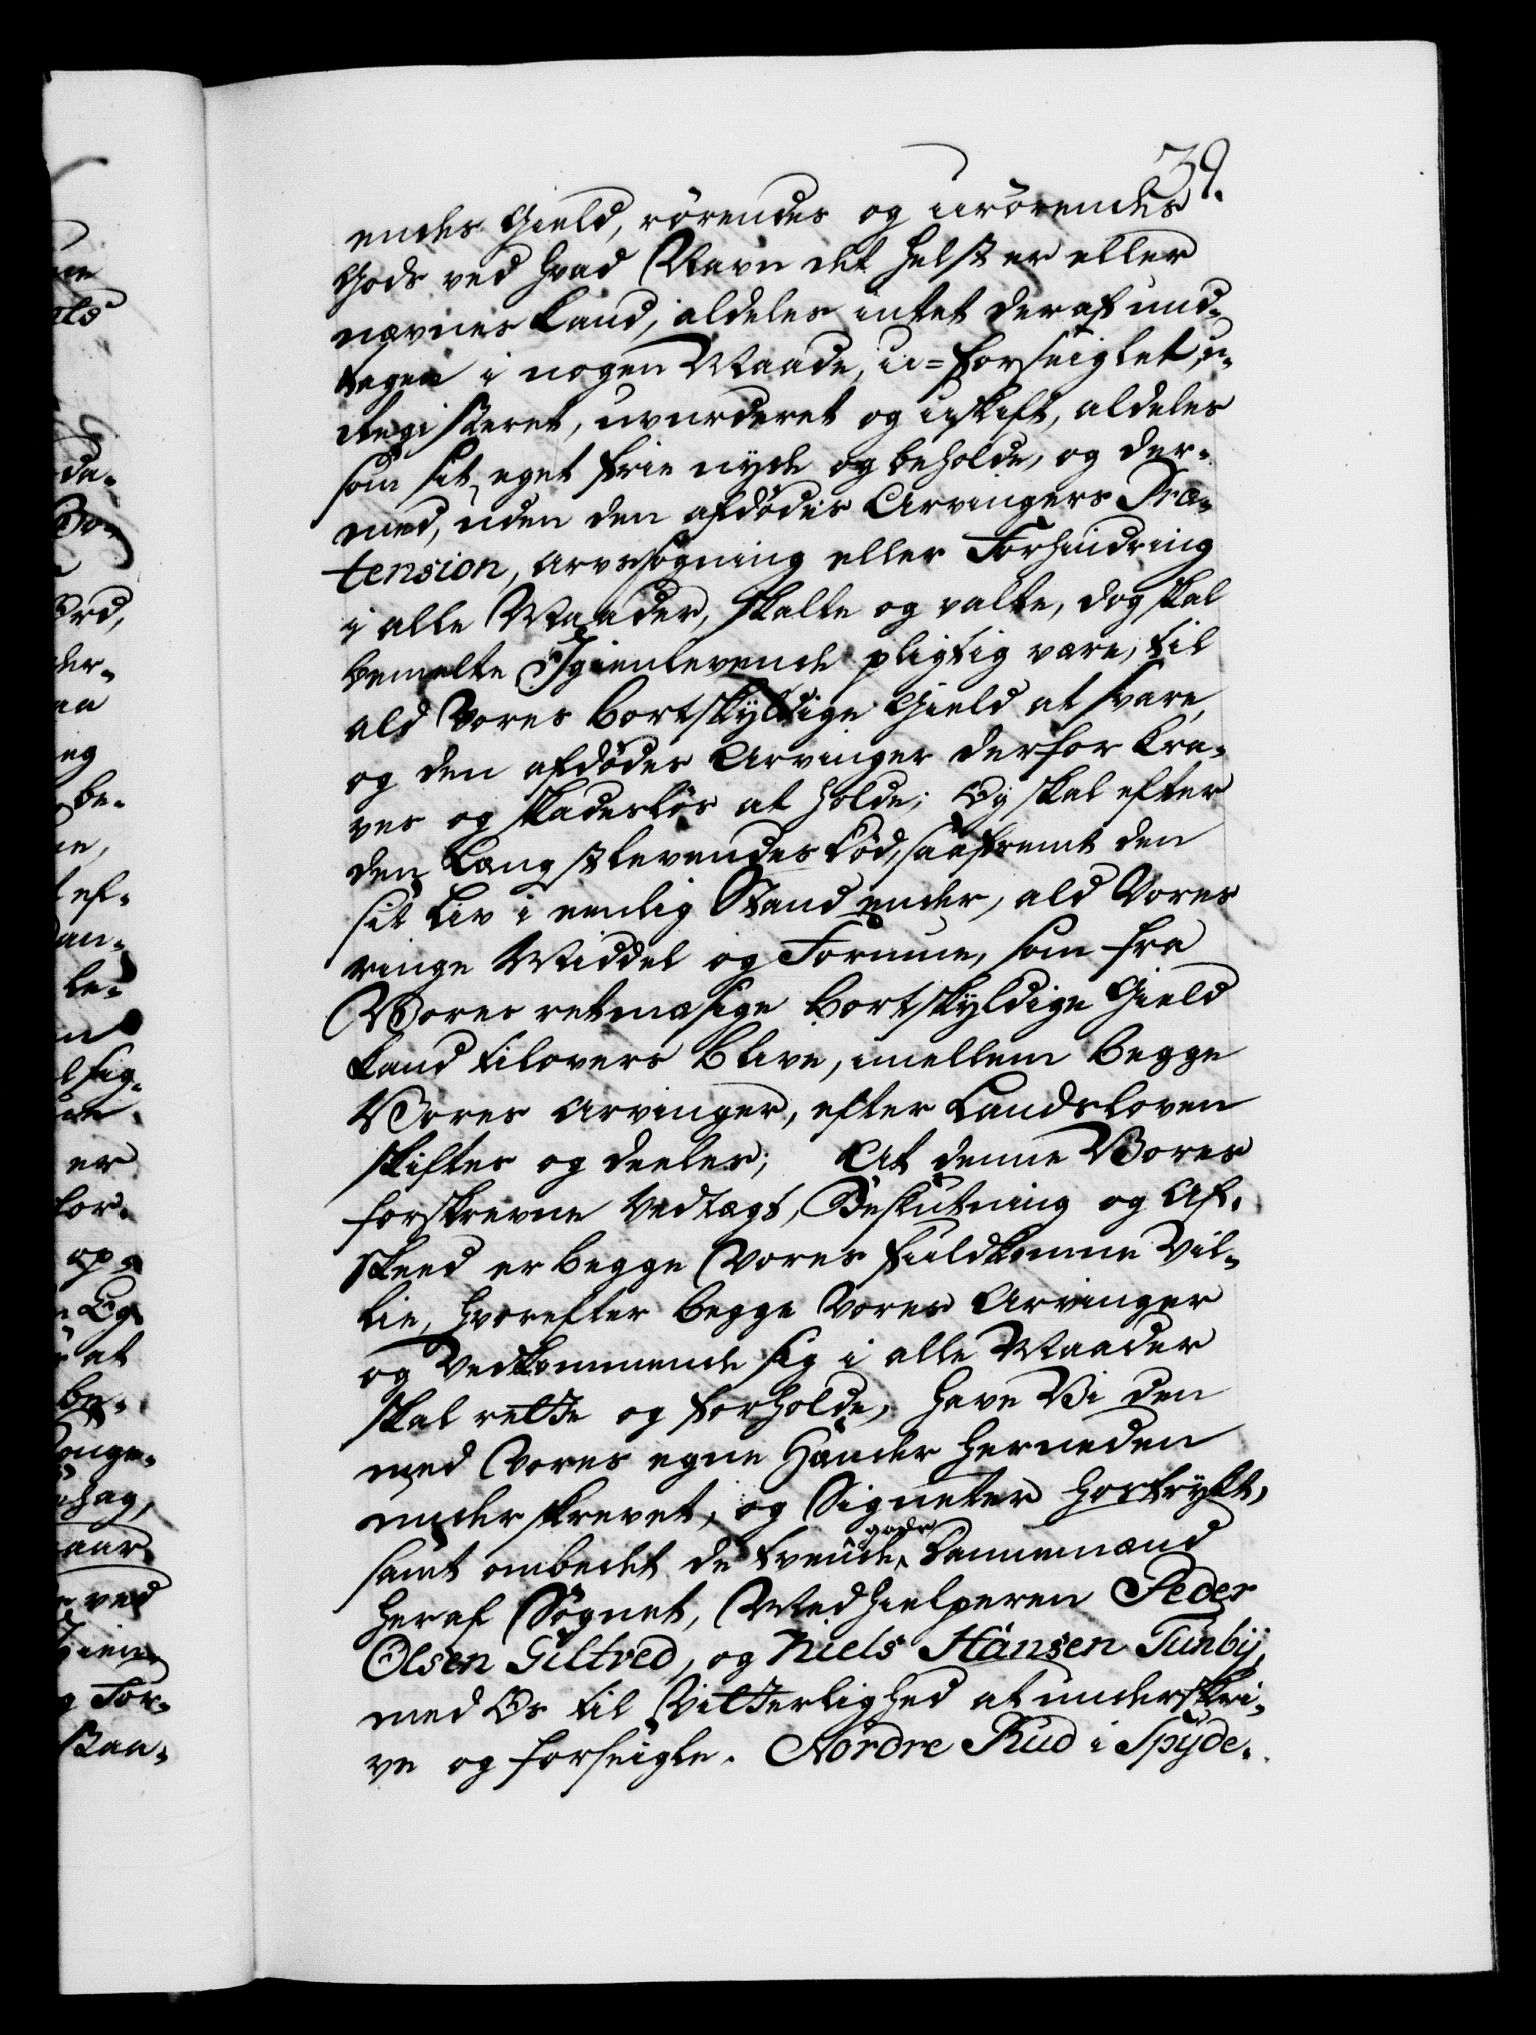 39.
endes Gield, rörendes og urörendes
Gods ved hvad Navn det helst er eller
nævnes kand, aldeles intet deraf und-
tagen i nogen Maade, u=forseiglet, u-
Registeret, uvurderet og uskift, aldeles
som sit eget frie nyde og beholde, og der-
med, uden den afdödes Arvingers Præ-
tension, arvesögning eller Forhindring
i alle Maader, skalte og valte, dog skal
bemelte Igienlevende pligtig være, til
ald Vores bortskyldige Gield at svare,
og den afdödes Arvinger derfor kra-
ves og skadeslös at holde; Og skal efter
den Længstlevendes Död, saafremt den
sit Liv i eenlig Stand ender, ald Vores
ringe Middel og Formue, som fra
Vores retmæsige bortskyldige Gield
kand tilovers blive, imellem begge
Vores Arvinger, efter Landsloven
skiftes og deeles; At denne Vores
forskrevne Vedtægt, Beslutning og Af-
skeed er begge Vores fuldkomne Vil-
lie, hvorefter begge Vores Arvinger
og Vedkommende sig i alle Maader
skal rette og forholde, have Vi den
med Vores egne Hænder herneden
underskrevet, og Signeter hostrykt,
samt ombedet de tvende gode Dannemænd
heraf Sognet, Medhielperen Peder
Olsen Giltved, og Niels Hansen Tunbÿ,
med Os til Vitterlighed at underskri-
ve og forseigle. Nordre Rud i Spÿde-